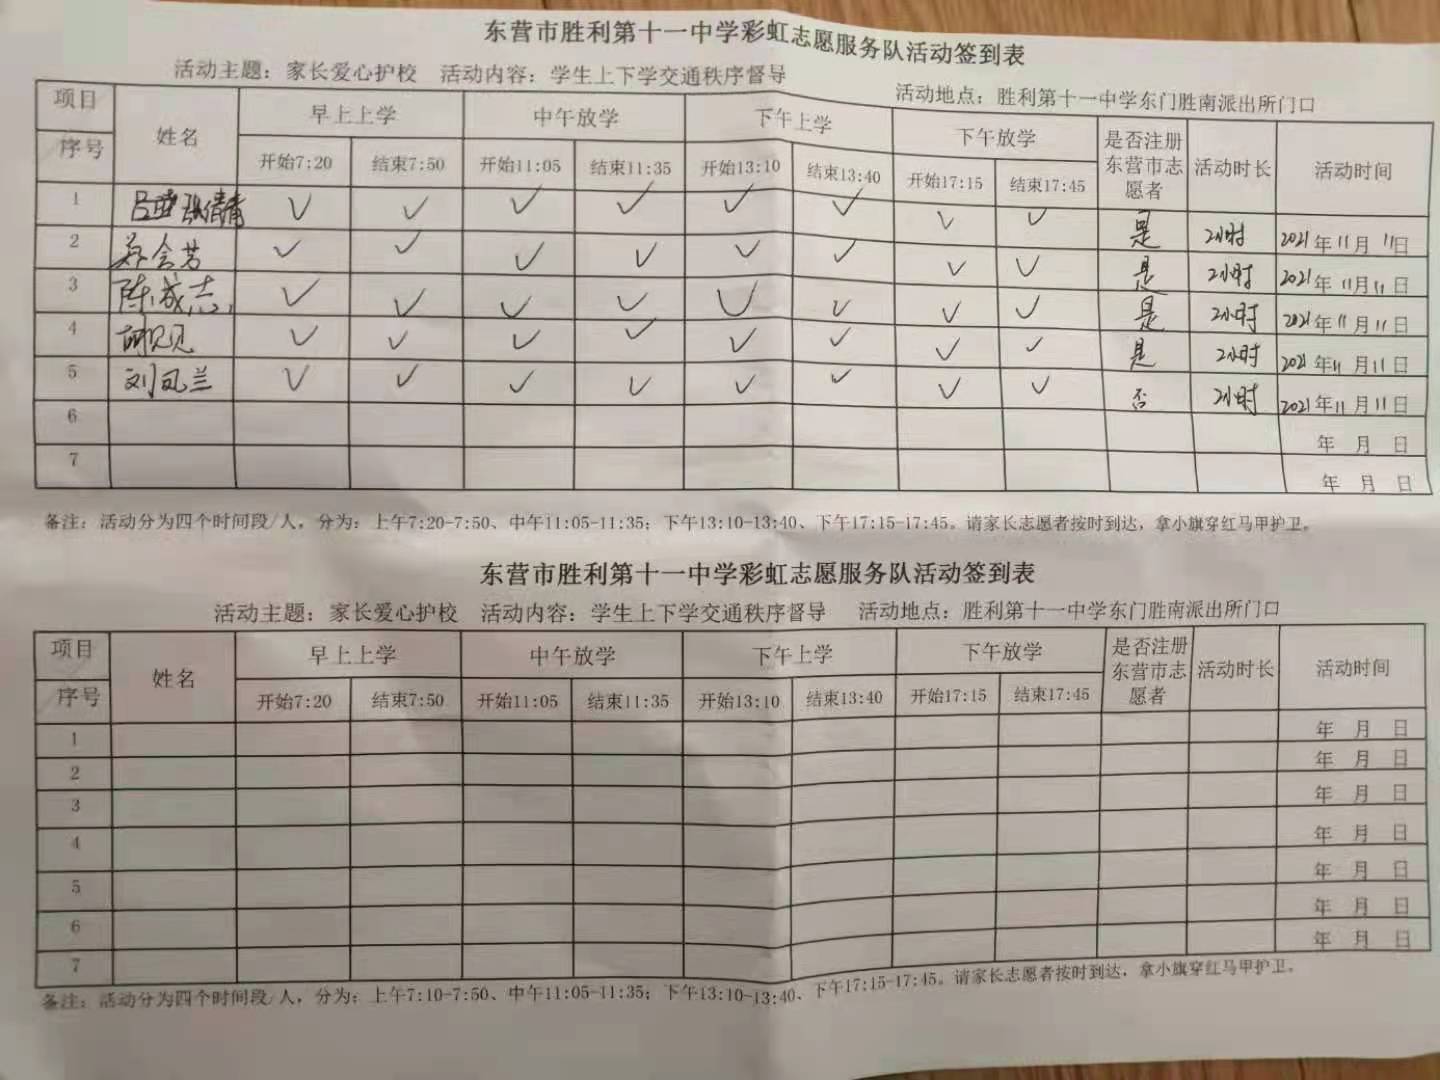 东营市胜利第十一中学彩虹志愿服务队活动签到表
活动主题：家长爱心护校 活动内容：学生上下学交通秩序督导 活动地点：胜利第十一中学东门胜南派出所门口
项目 姓名 早上上学 中午放学 下午上学 下午放学 是否注册东营市志愿者 活动时长 活动时间
序号 开始7:20 结束7:50 开始11:05 结束11:35 开始13:10 结束13:40 开始17:15 结束17:45
1 张倩倩 ✓ ✓ ✓ ✓ ✓ ✓ ✓ ✓ 是 2小时 2021年11月11日
2 郑会芳 ✓ ✓ ✓ ✓ ✓ ✓ ✓ ✓ 是 2小时 2021年11月11日
3 陈成志 ✓ ✓ ✓ ✓ ✓ ✓ ✓ ✓ 是 2小时 2021年11月11日
4 ✓ ✓ ✓ ✓ ✓ ✓ ✓ ✓ 是 2小时 2021年11月11日
5 刘凤兰 ✓ ✓ ✓ ✓ ✓ ✓ ✓ ✓ 否 2小时 2021年11月11日
6 年 月 日
7 年 月 日
备注：活动分为四个时间段/人，分为：上午7:20-7:50、中午11:05-11:35；下午13:10-13:40、下午17:15-17:45。请家长志愿者按时到达，拿小旗穿红马甲护卫。
东营市胜利第十一中学彩虹志愿服务队活动签到表
活动主题：家长爱心护校 活动内容：学生上下学交通秩序督导 活动地点：胜利第十一中学东门胜南派出所门口
项目 姓名 早上上学 中午放学 下午上学 下午放学 是否注册东营市志愿者 活动时长 活动时间
序号 开始7:20 结束7:50 开始11:05 结束11:35 开始13:10 结束13:40 开始17:15 结束17:45
1 年 月 日
2 年 月 日
3 年 月 日
4 年 月 日
5 年 月 日
6 年 月 日
7 年 月 日
备注：活动分为四个时间段/人，分为：上午7:10-7:50、中午11:05-11:35；下午13:10-13:40、下午17:15-17:45。请家长志愿者按时到达，拿小旗穿红马甲护卫。